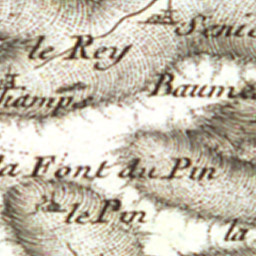 le Rey
Baume
la Font du Pin
le Pin
la